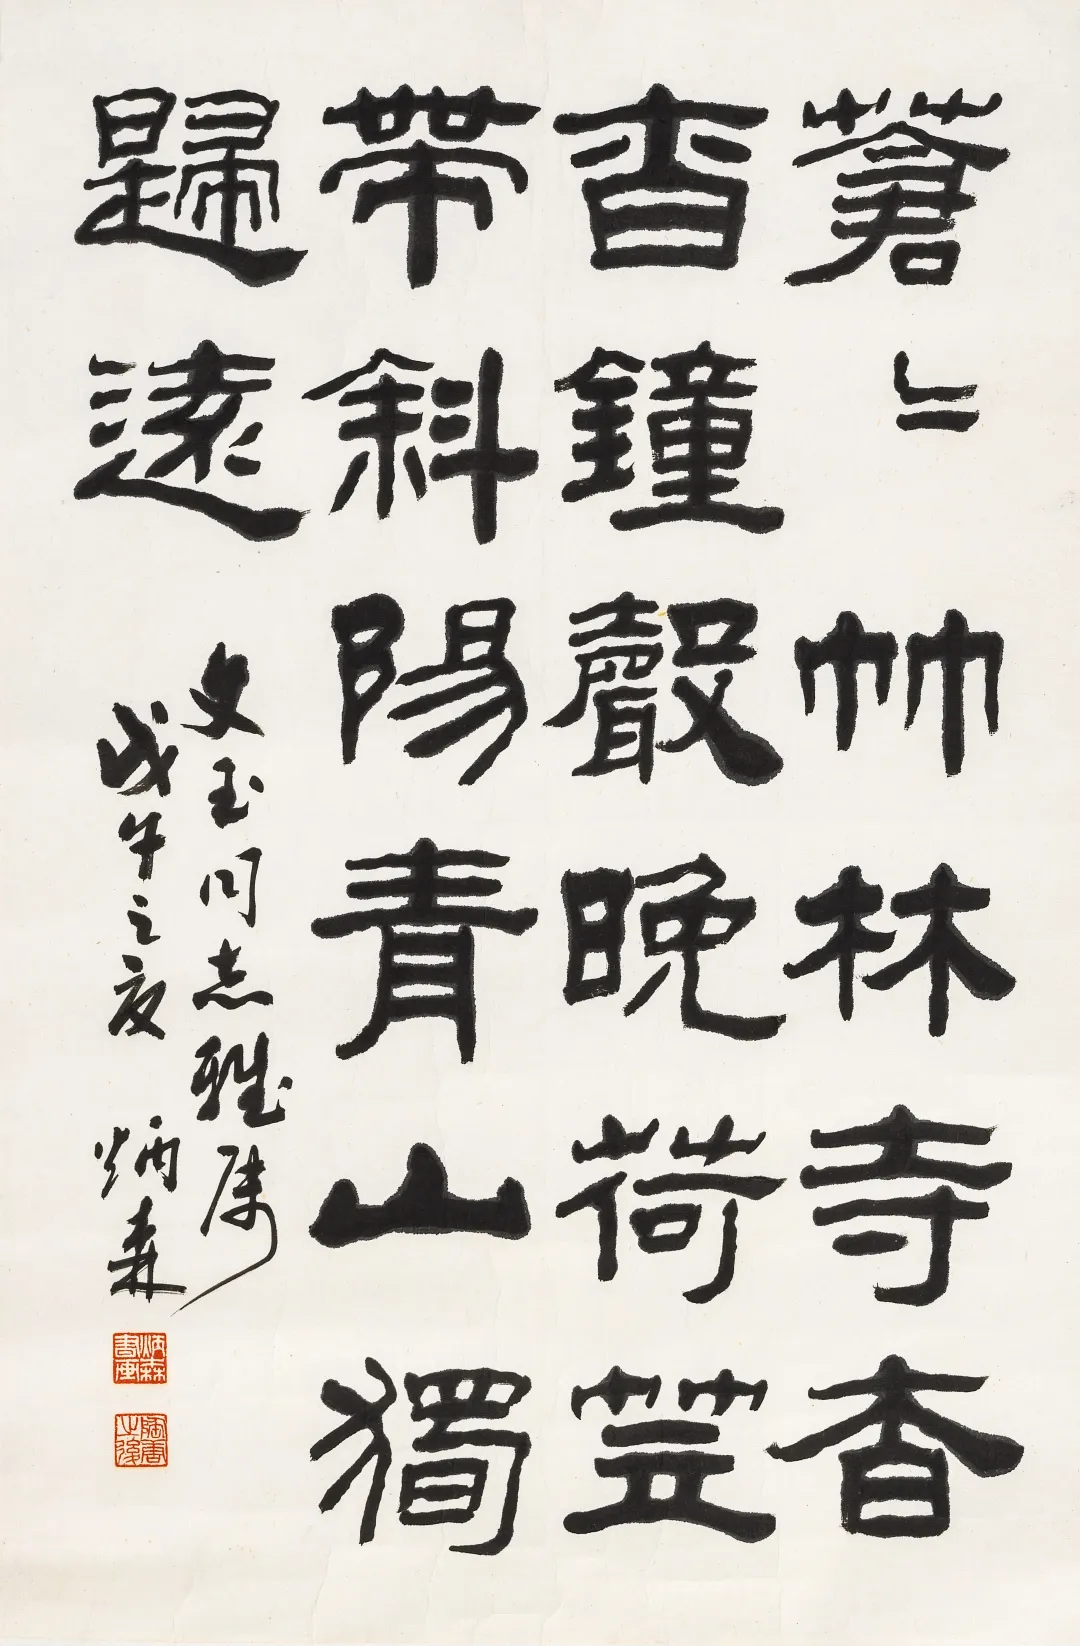 蒼〻竹林寺杳
杳鐘聲晚荷笠
帶斜陽青山獨
歸遠
文玉同志雅属
戊午之夏 炳森
炳森書画
陶唐之後